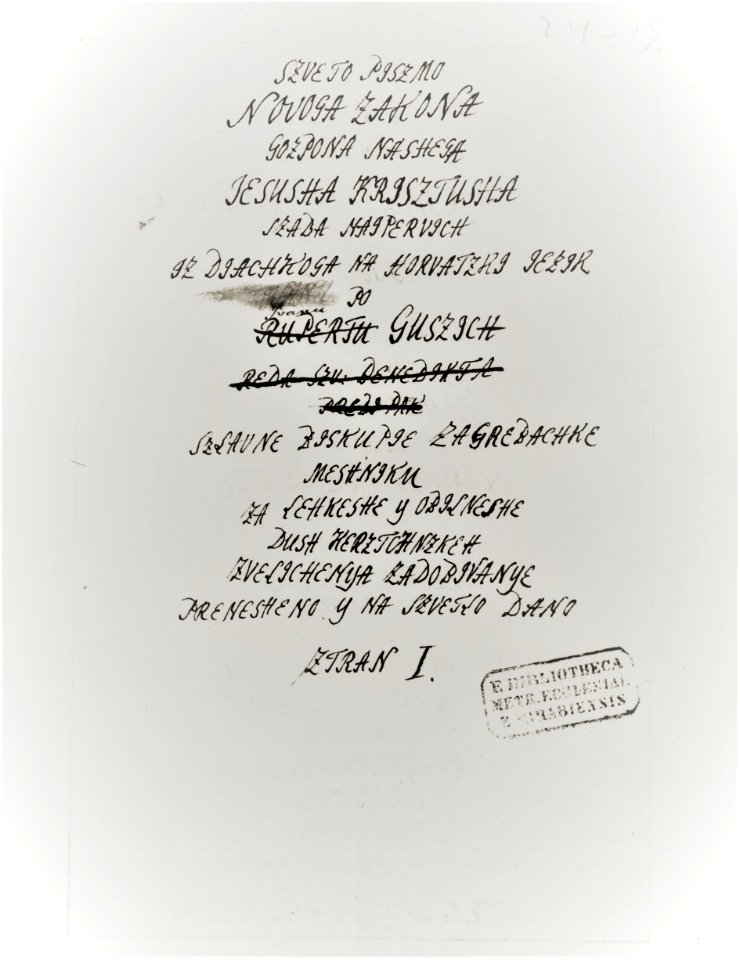 SZVETO PISZMO
NOVOGA ZAKONA
GOZPONA NASHEGA
JESUSHA KRISZTUSHA
SZADA NAIPERVICH
IZ DIACHKOGA NA HORVATZKI JEZIK
PO
Ivanu
RUPERTU GUSZICH
REDA SZV: BENEDIKTA
SZLAVNE BISKUPIE ZAGREBACHKE
MESHNIKU
ZA LEHKESHE Y OBILNESHE
DUSH KERZTCHNZKEH
ZVELICHENYA ZADOBIVANYE
PRENESHENO Y NA SZVETLO DANO
ZTRAN I.
E BIBLIOTHECA
METR. ECCLESIAE
ZAGRABIENSIS